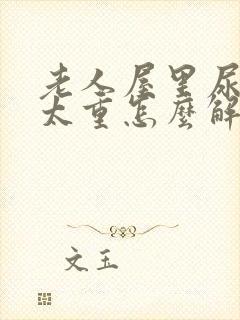 老人屋里尿
太重怎麼解
文玉